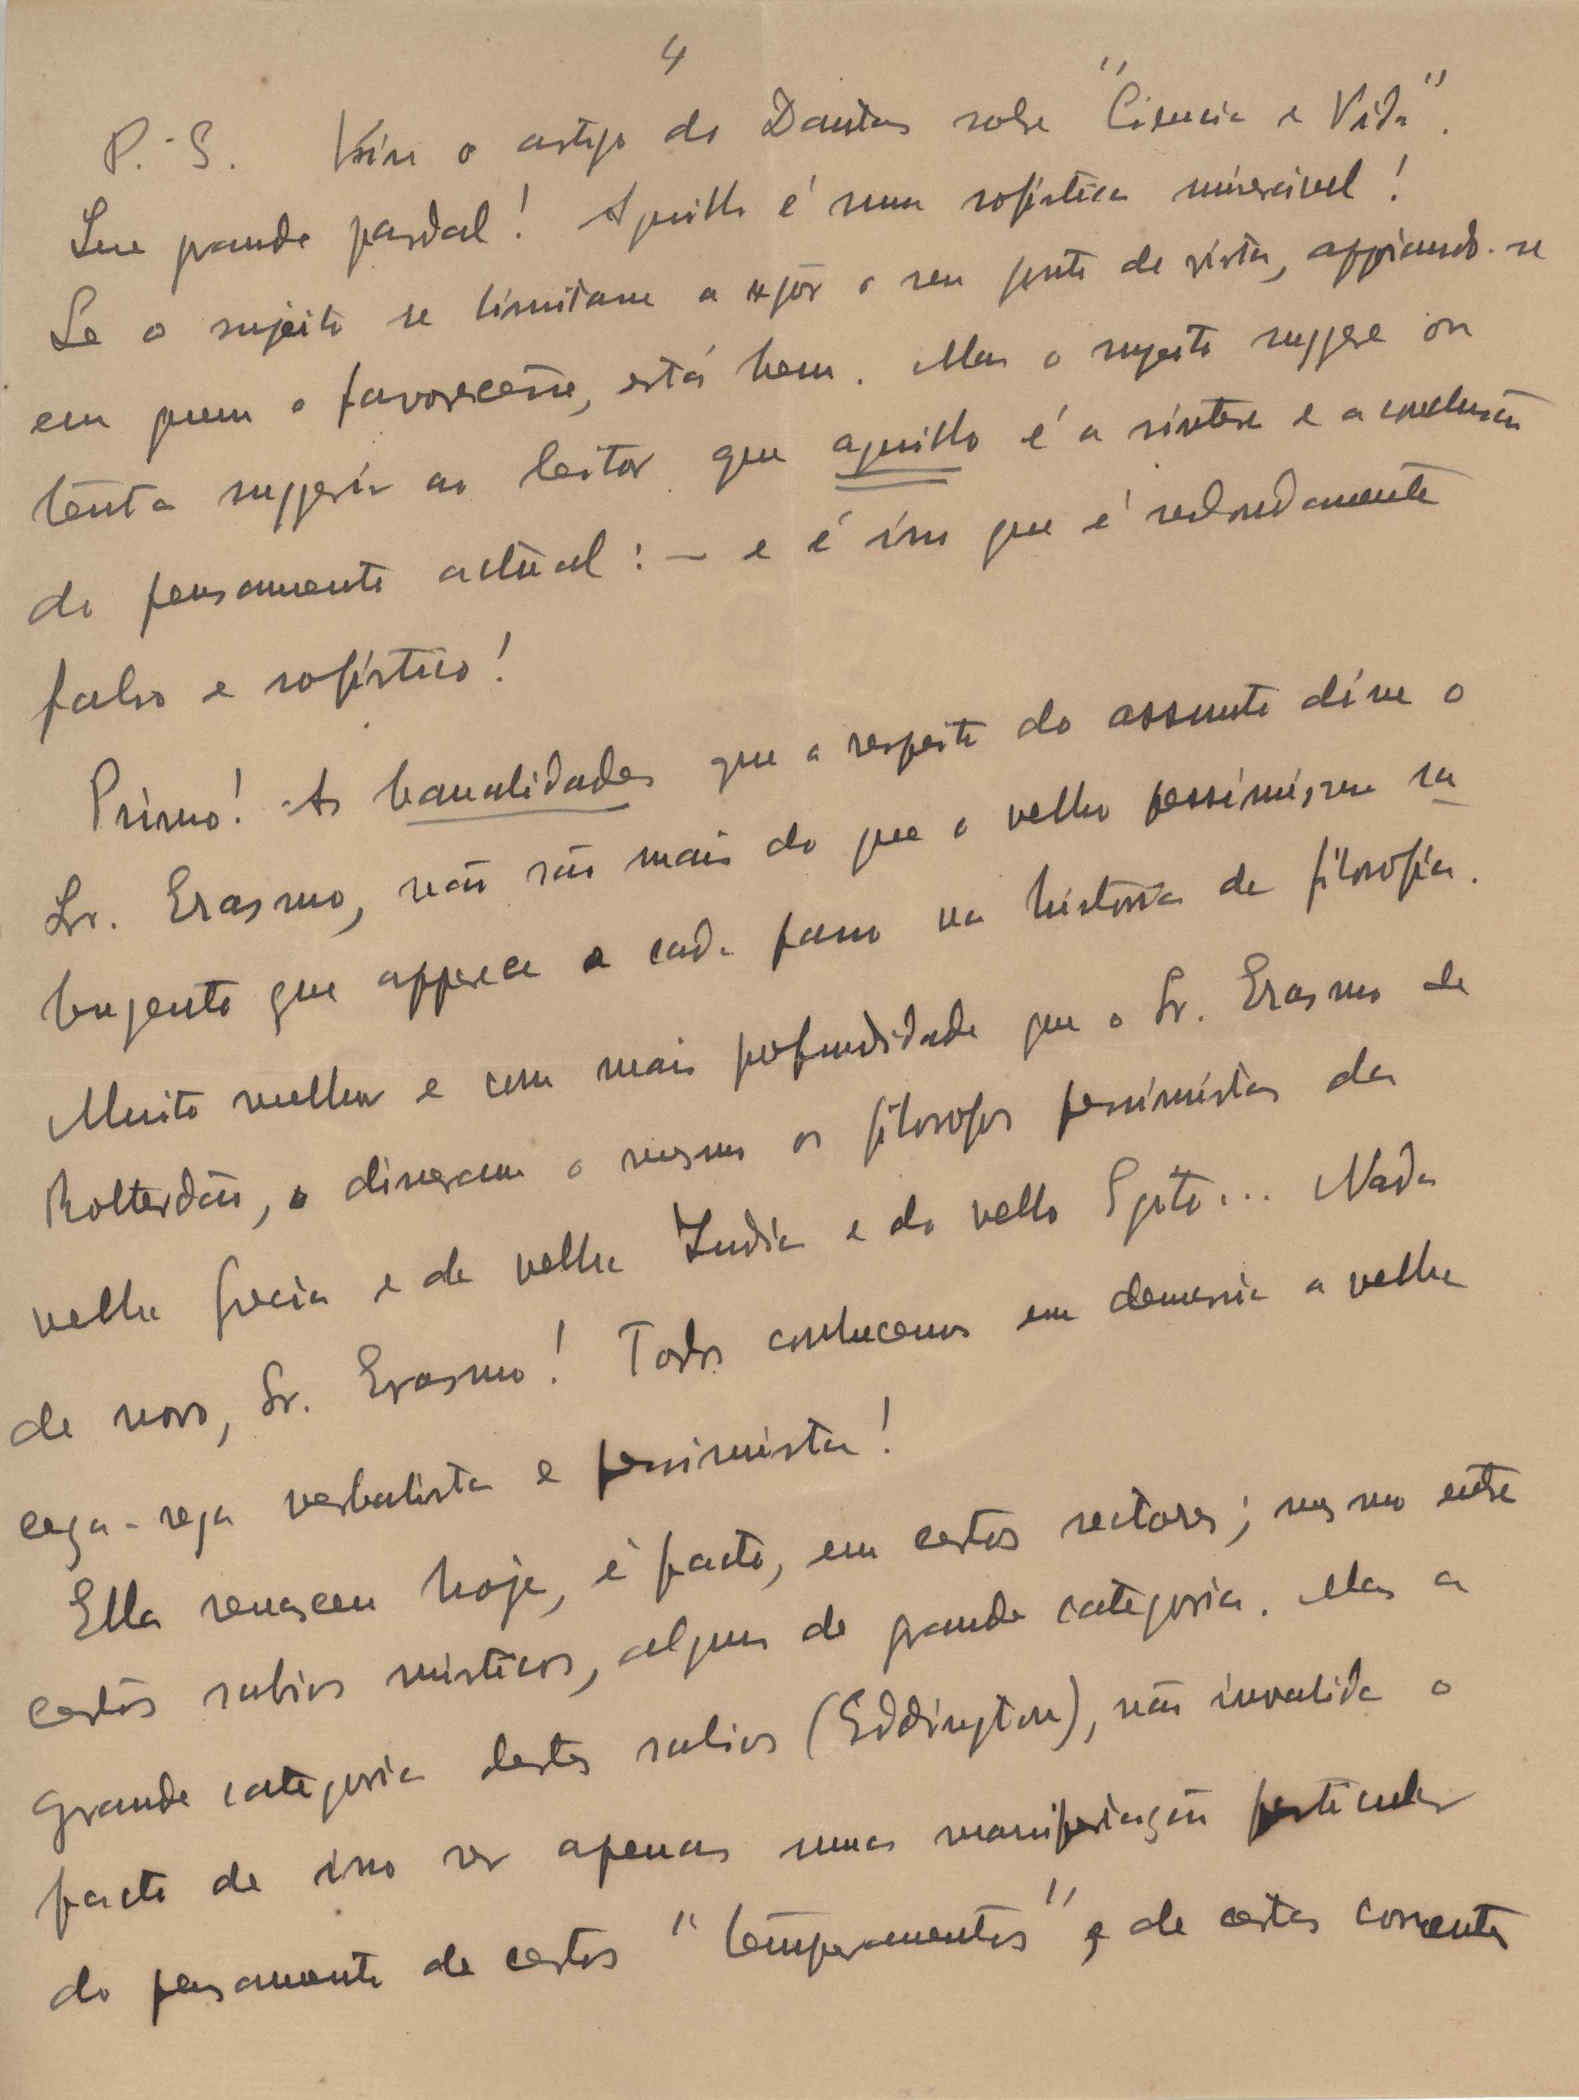 4
P.-S. Viu o artigo do Dantas sobre "Ciencia e Vida".
Seu grande pardal! Aquillo é uma sofistica miseravel!
Se o sujeito se limitasse a expôr o seu ponto de vista, appoiando-se
em quem o favorecesse, está bem. Mas o sugeito suggere ou
tenta suggerir ao leitor que aquillo é a síntese e a conclusão
do pensamento actual: - e é isso que é redondamente
falso e sofístico!
Primo! As banalidades que a respeito do assunto disse o
Sr. Erasmo, não são mais do que o velho pessimismo ra
bugento que apparece a cada passo na historia da filosofia.
Muito melhor e com mais profundidade que o Sr. Erasmo de
Rotterdão, o disseram o mesmo os filosofos pessimistas da
velha Grecia e da velha India e do velho Egito... Nada
de novo, Sr. Erasmo! Todos conhecemos em demasia a velha
cega-rega verbalista e pessimista!
Ella renasceu hoje, é facto, em certos sectores; mesmo entre
certos sabios misticos, alguns de grande categoria. Mas a
grande categoria destes sabios (Eddington), não invalida o
facto de isso ser apenas uma manifestação particular
do pensamento de certos "temperamentos" e de certas correntes